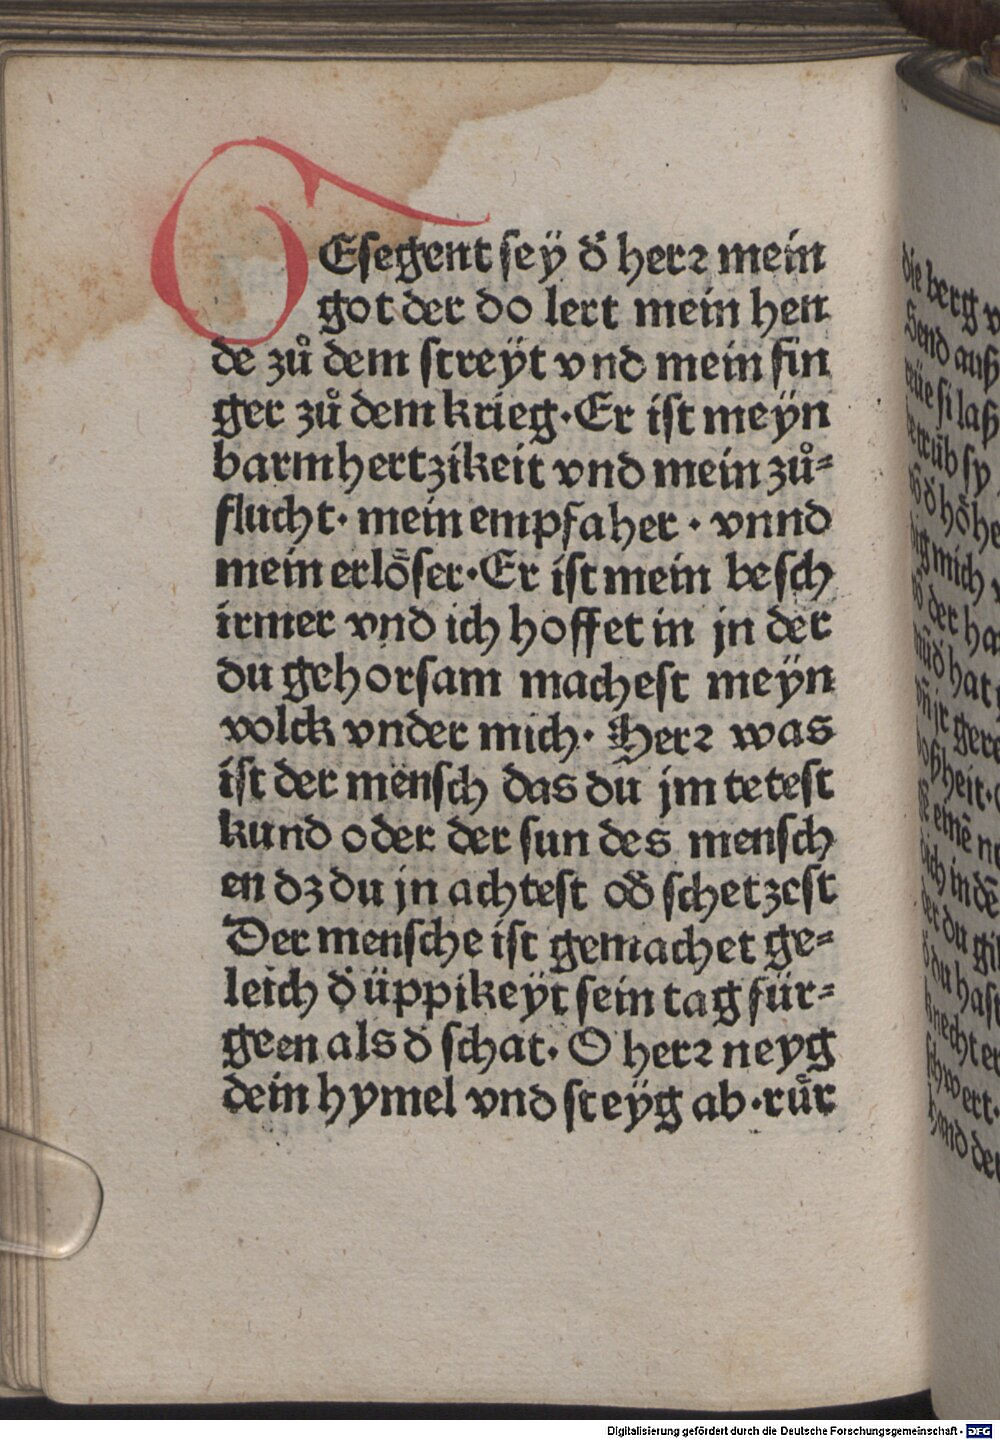 GEsegent sey d̕ herꝛ mein
got der do lert mein hen
de zů dem streÿt vnd mein fin
ger zů dem krieg·Er ist meÿn
barmhertzikeit vnd mein zů⸗
flucht· mein empfaher · vnnd
mein erlöser·Er ist mein besch
irmer vnd ich hoffet in jn der
du gehorsam machest meÿn
volck vnder mich· Herꝛ was
ist der mensch das du jm tetest
kund oder der sun des mensch
en dz du jn achtest od̕ schetzest
Der mensche ist gemachet ge⸗
leich d̕ üppikeÿt sein tag für⸗
geen als d̕ schat· O herꝛ neyg
dein hymel vnd steÿg ab·rür
die berg
Send auß
si laß
betrüb sy
d̕ höhe
mich
der ha
hat
jr gere
boßheit·
einē
dich in dē
der du gi
du hast
knecht
schwert·
hand der
Digitalisierung gefördert durch die Deutsche Forschungsgemeinschaft - DFG